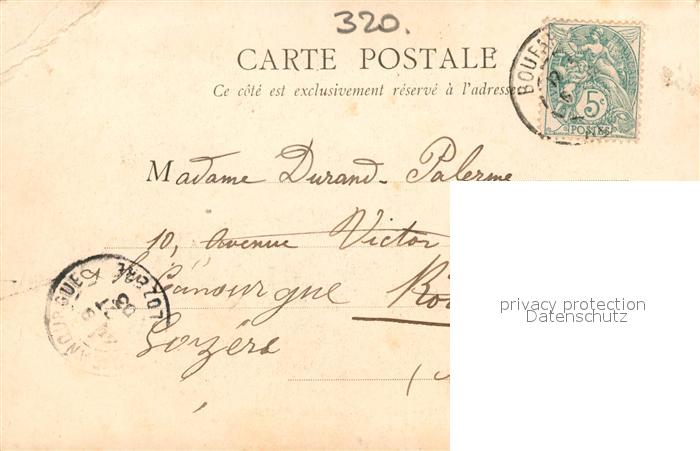 320.
CARTE POSTALE
Ce côté est exclusivement réservé à l'adresse
5c
POSTES
Madame Durand-Palerme
10, Avenue Victor
La Canourgue
Lozère
privacy protection
Datenschutz